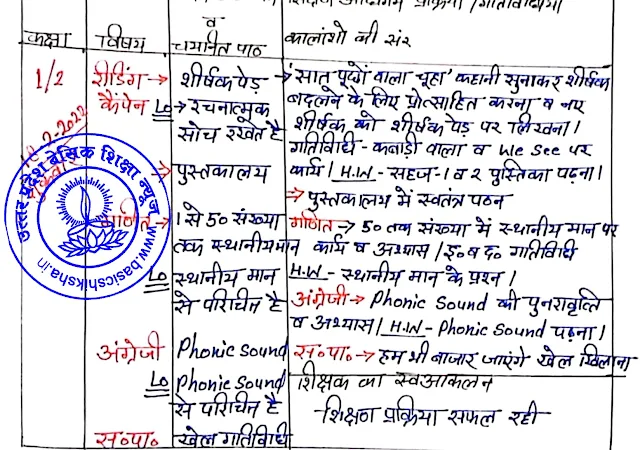 व शिक्षण अधिगम प्रक्रिया / गतिविधियाँ
कक्षा विषय चयनित पाठ कालांशो की सं०
1/2 रीडिंग → शीर्षक पेड़ → 'सात पूछों वाला चूहा' कहानी सुनाकर शीर्षक
कैंपेन Lo → रचनात्मक बदलने के लिए प्रोत्साहित करना व नए
18-2-2022 सोच रखते है शीर्षक को शीर्षक पेड़ पर लिखना।
शुक्रवार गतिविधि - कबाड़ी वाला व We See पर
→ पुस्तकालय कार्य। H.W - सहज-1 व 2 पुस्तिका पढ़ना।
→ पुस्तकालय में स्वतंत्र पठन
गणित → 1 से 50 संख्या गणित → 50 तक संख्या में स्थानीय मान पर
तक स्थानीयमान कार्य व अभ्यास। इ० ब द० गतिविधी
Lo स्थानीय मान H.W - स्थानीय मान के प्रश्न।
से परिचित है अंग्रेजी → Phonic Sound की पुनरावृत्ति
व अभ्यास। H.W - Phonic Sound पढ़ना।
अंग्रेजी Phonic Sound स०पा० → हम भी बाजार जाएंगे खेल खिलाना
Lo Phonic Sound शिक्षक का स्वआकलन
से परिचित है शिक्षण प्रक्रिया सफल रही
स०पा० खेल गतिविधी
उत्तर प्रदेश बेसिक शिक्षा न्यूज
www.basicshiksha.in